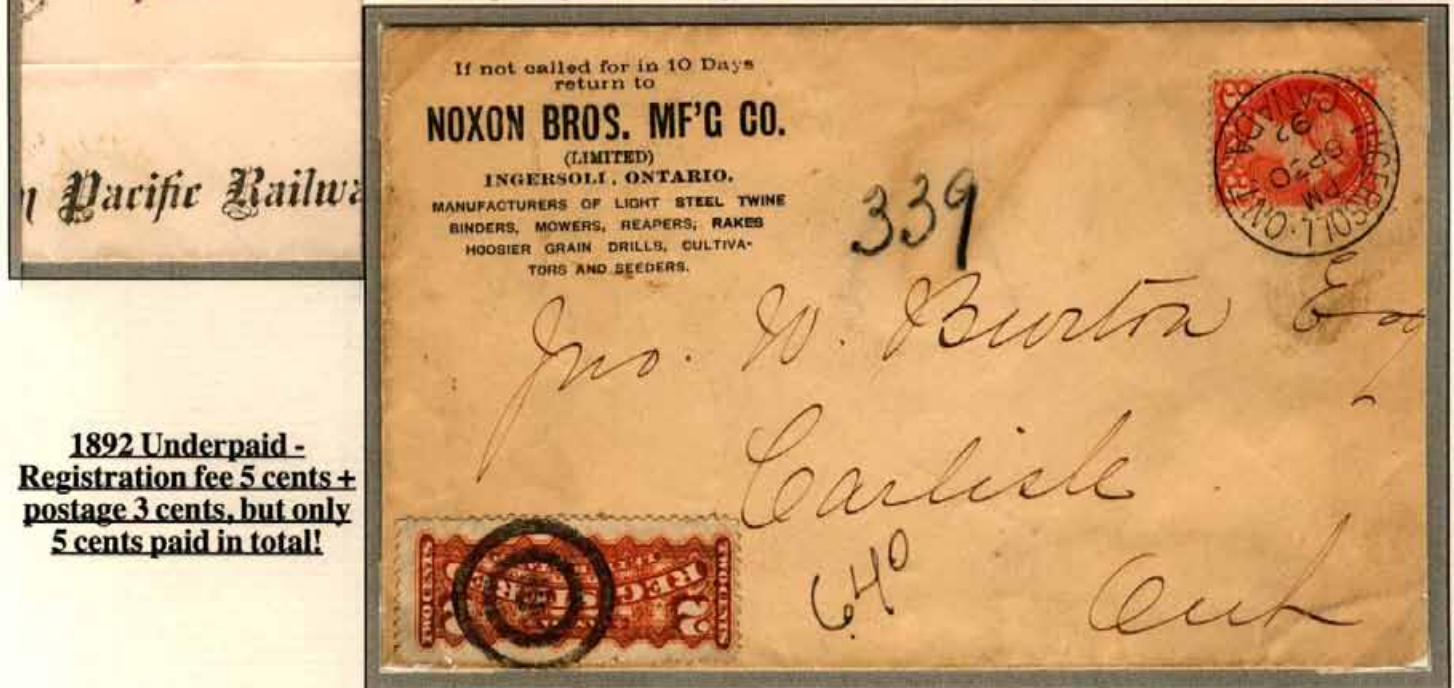 Pacific Railwa
1892 Underpaid -
Registration fee 5 cents +
postage 3 cents, but only
5 cents paid in total!
If not called for in 10 Days
return to
NOXON BROS. MF'G CO.
(LIMITED)
INGERSOLL, ONTARIO.
MANUFACTURERS OF LIGHT STEEL TWINE
BINDERS, MOWERS, REAPERS, RAKES
HOOSIER GRAIN DRILLS, CULTIVA-
TORS AND SEEDERS.
339
INGERSOLL·ONT.
PM
SP 20
92
CANADA
Jno. W. Burton Esq
Carlisle
Ont
640
TWO CENTS
2 REGISTERED 2
TWO CENTS